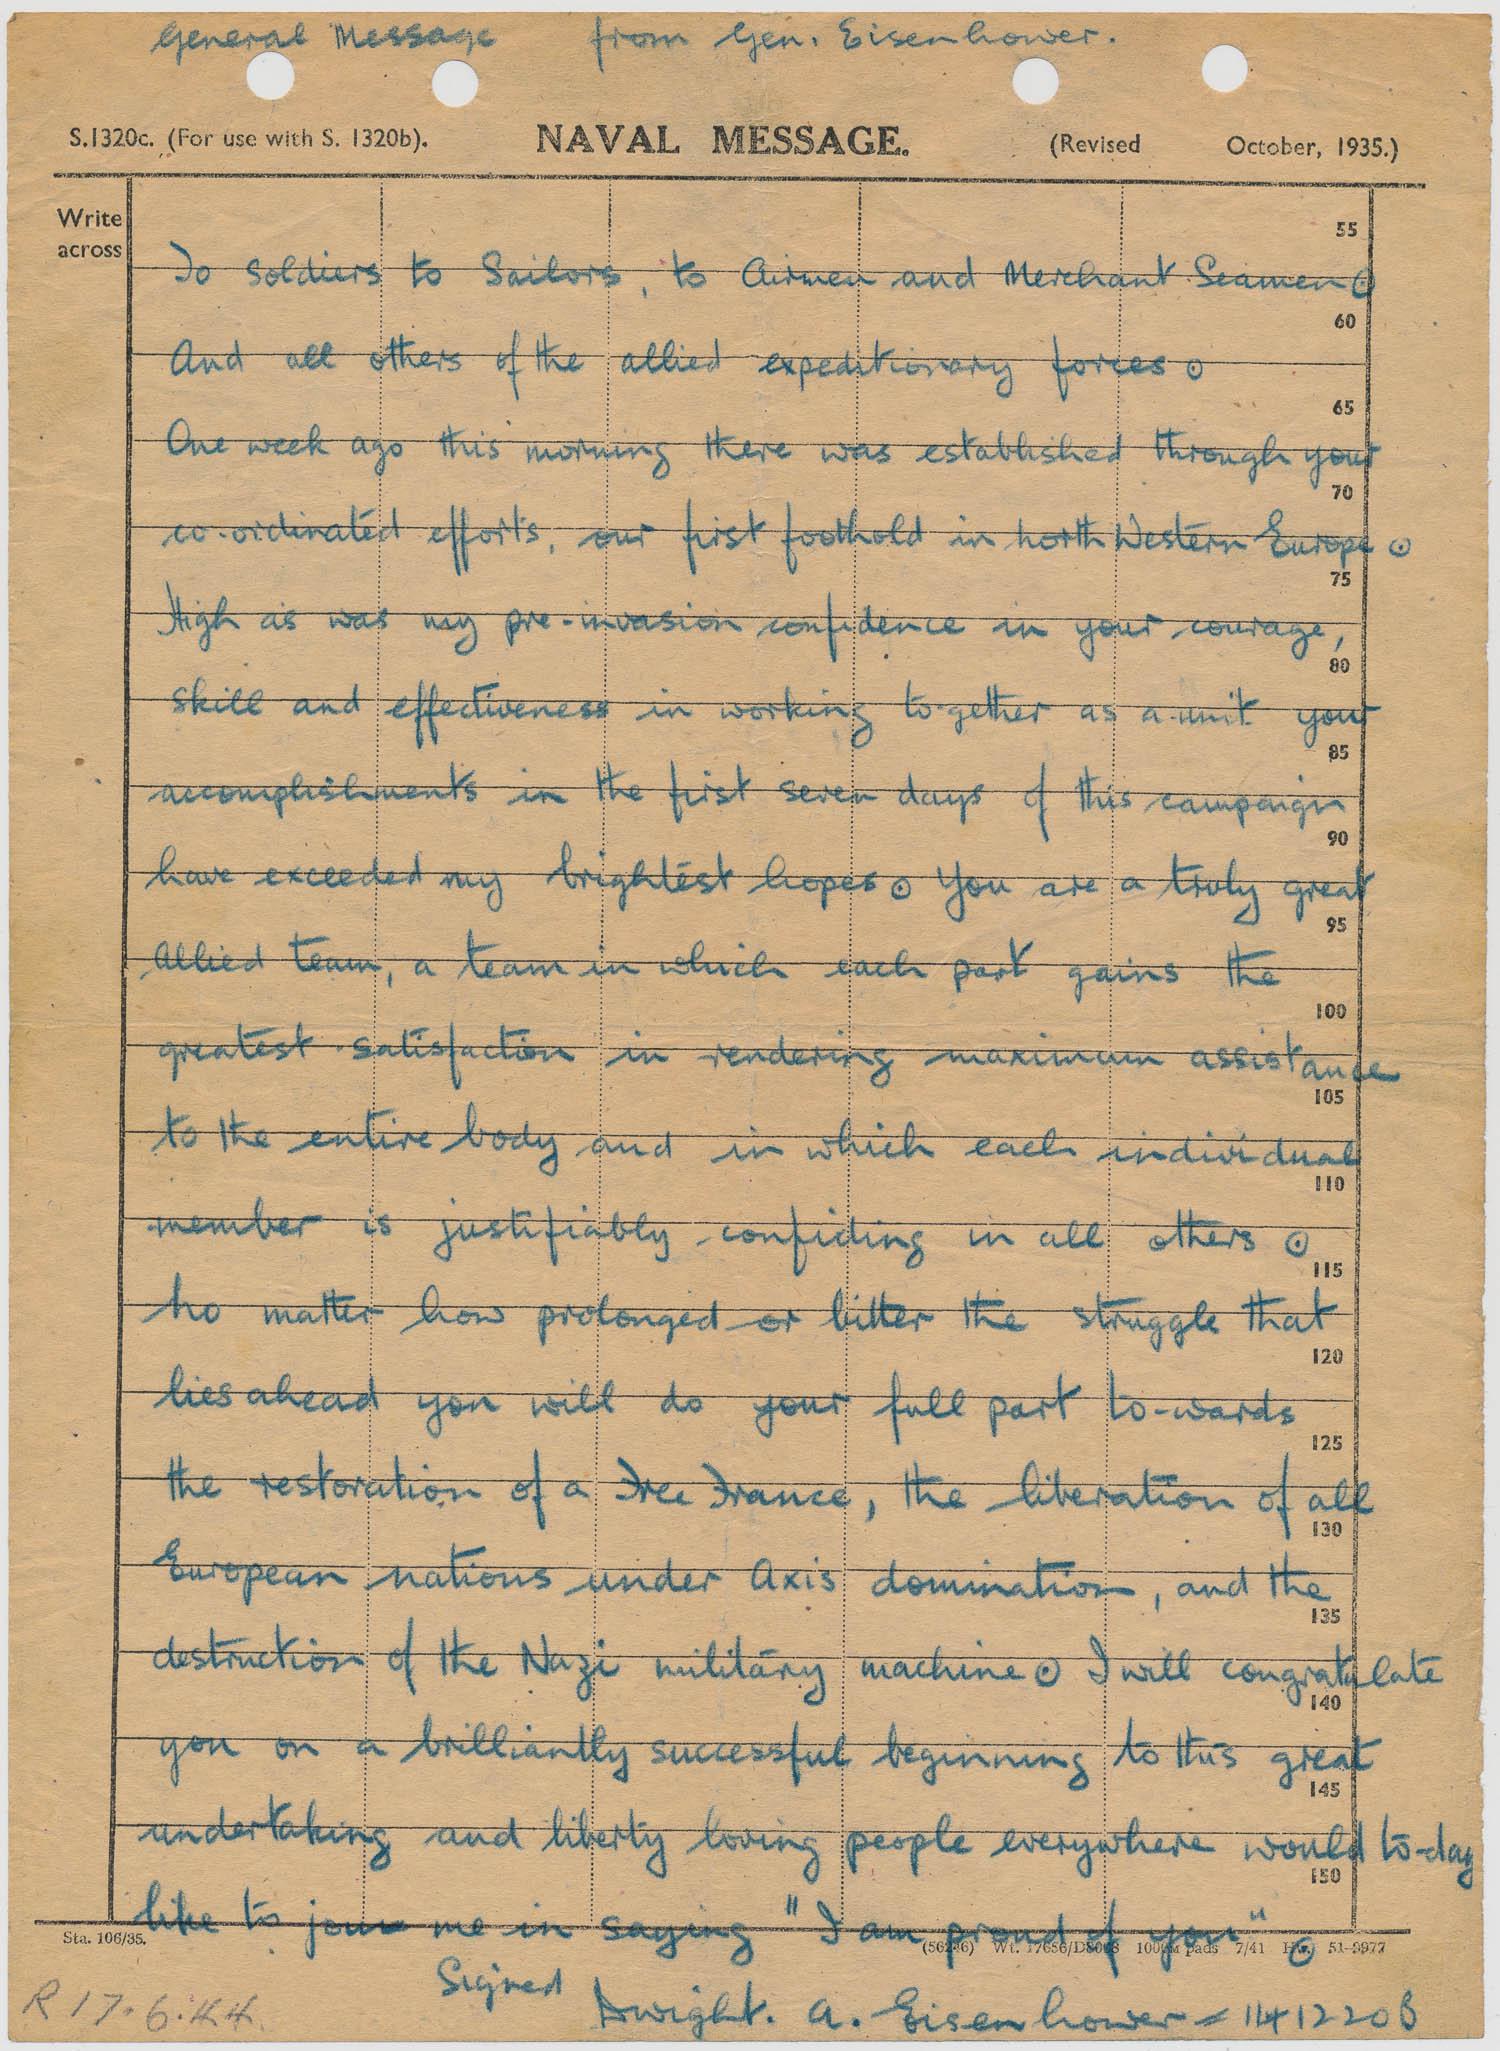 General Message from Gen. Eisenhower.
S.1320c. (For use with S. 1320b). NAVAL MESSAGE. (Revised October, 1935.)
Write
across
55
To Soldiers to Sailors, to Airmen and Merchant Seamen ⊙
60
And all others of the allied expeditionary forces ⊙
65
One week ago this morning there was established through your
70
co-ordinated efforts, our first foothold in north Western Europe ⊙
75
High as was my pre-invasion confidence in your courage,
80
skill and effectiveness in working to-gether as a unit your
85
accomplishments in the first seven days of this campaign
90
have exceeded my brightest hopes ⊙ You are a truly great
95
Allied team, a team in which each part gains the
100
greatest satisfaction in rendering maximum assistance
105
to the entire body and in which each individual
110
member is justifiably confiding in all others ⊙
115
No matter how prolonged or bitter the struggle that
120
lies ahead you will do your full part to-wards
125
the restoration of a Free France, the liberation of all
130
European nations under Axis domination, and the
135
destruction of the Nazi military machine ⊙ I will congratulate
140
you on a brilliantly successful beginning to this great
145
undertaking and liberty loving people everywhere would to-day
150
like to join me in saying "I am proud of you" ⊙
Sta. 106/35. (56286) Wt. 17656/D8068 100M pads 7/41 51-9977
Signed Dwight. A. Eisenhower = 141220B
R 17.6.44.